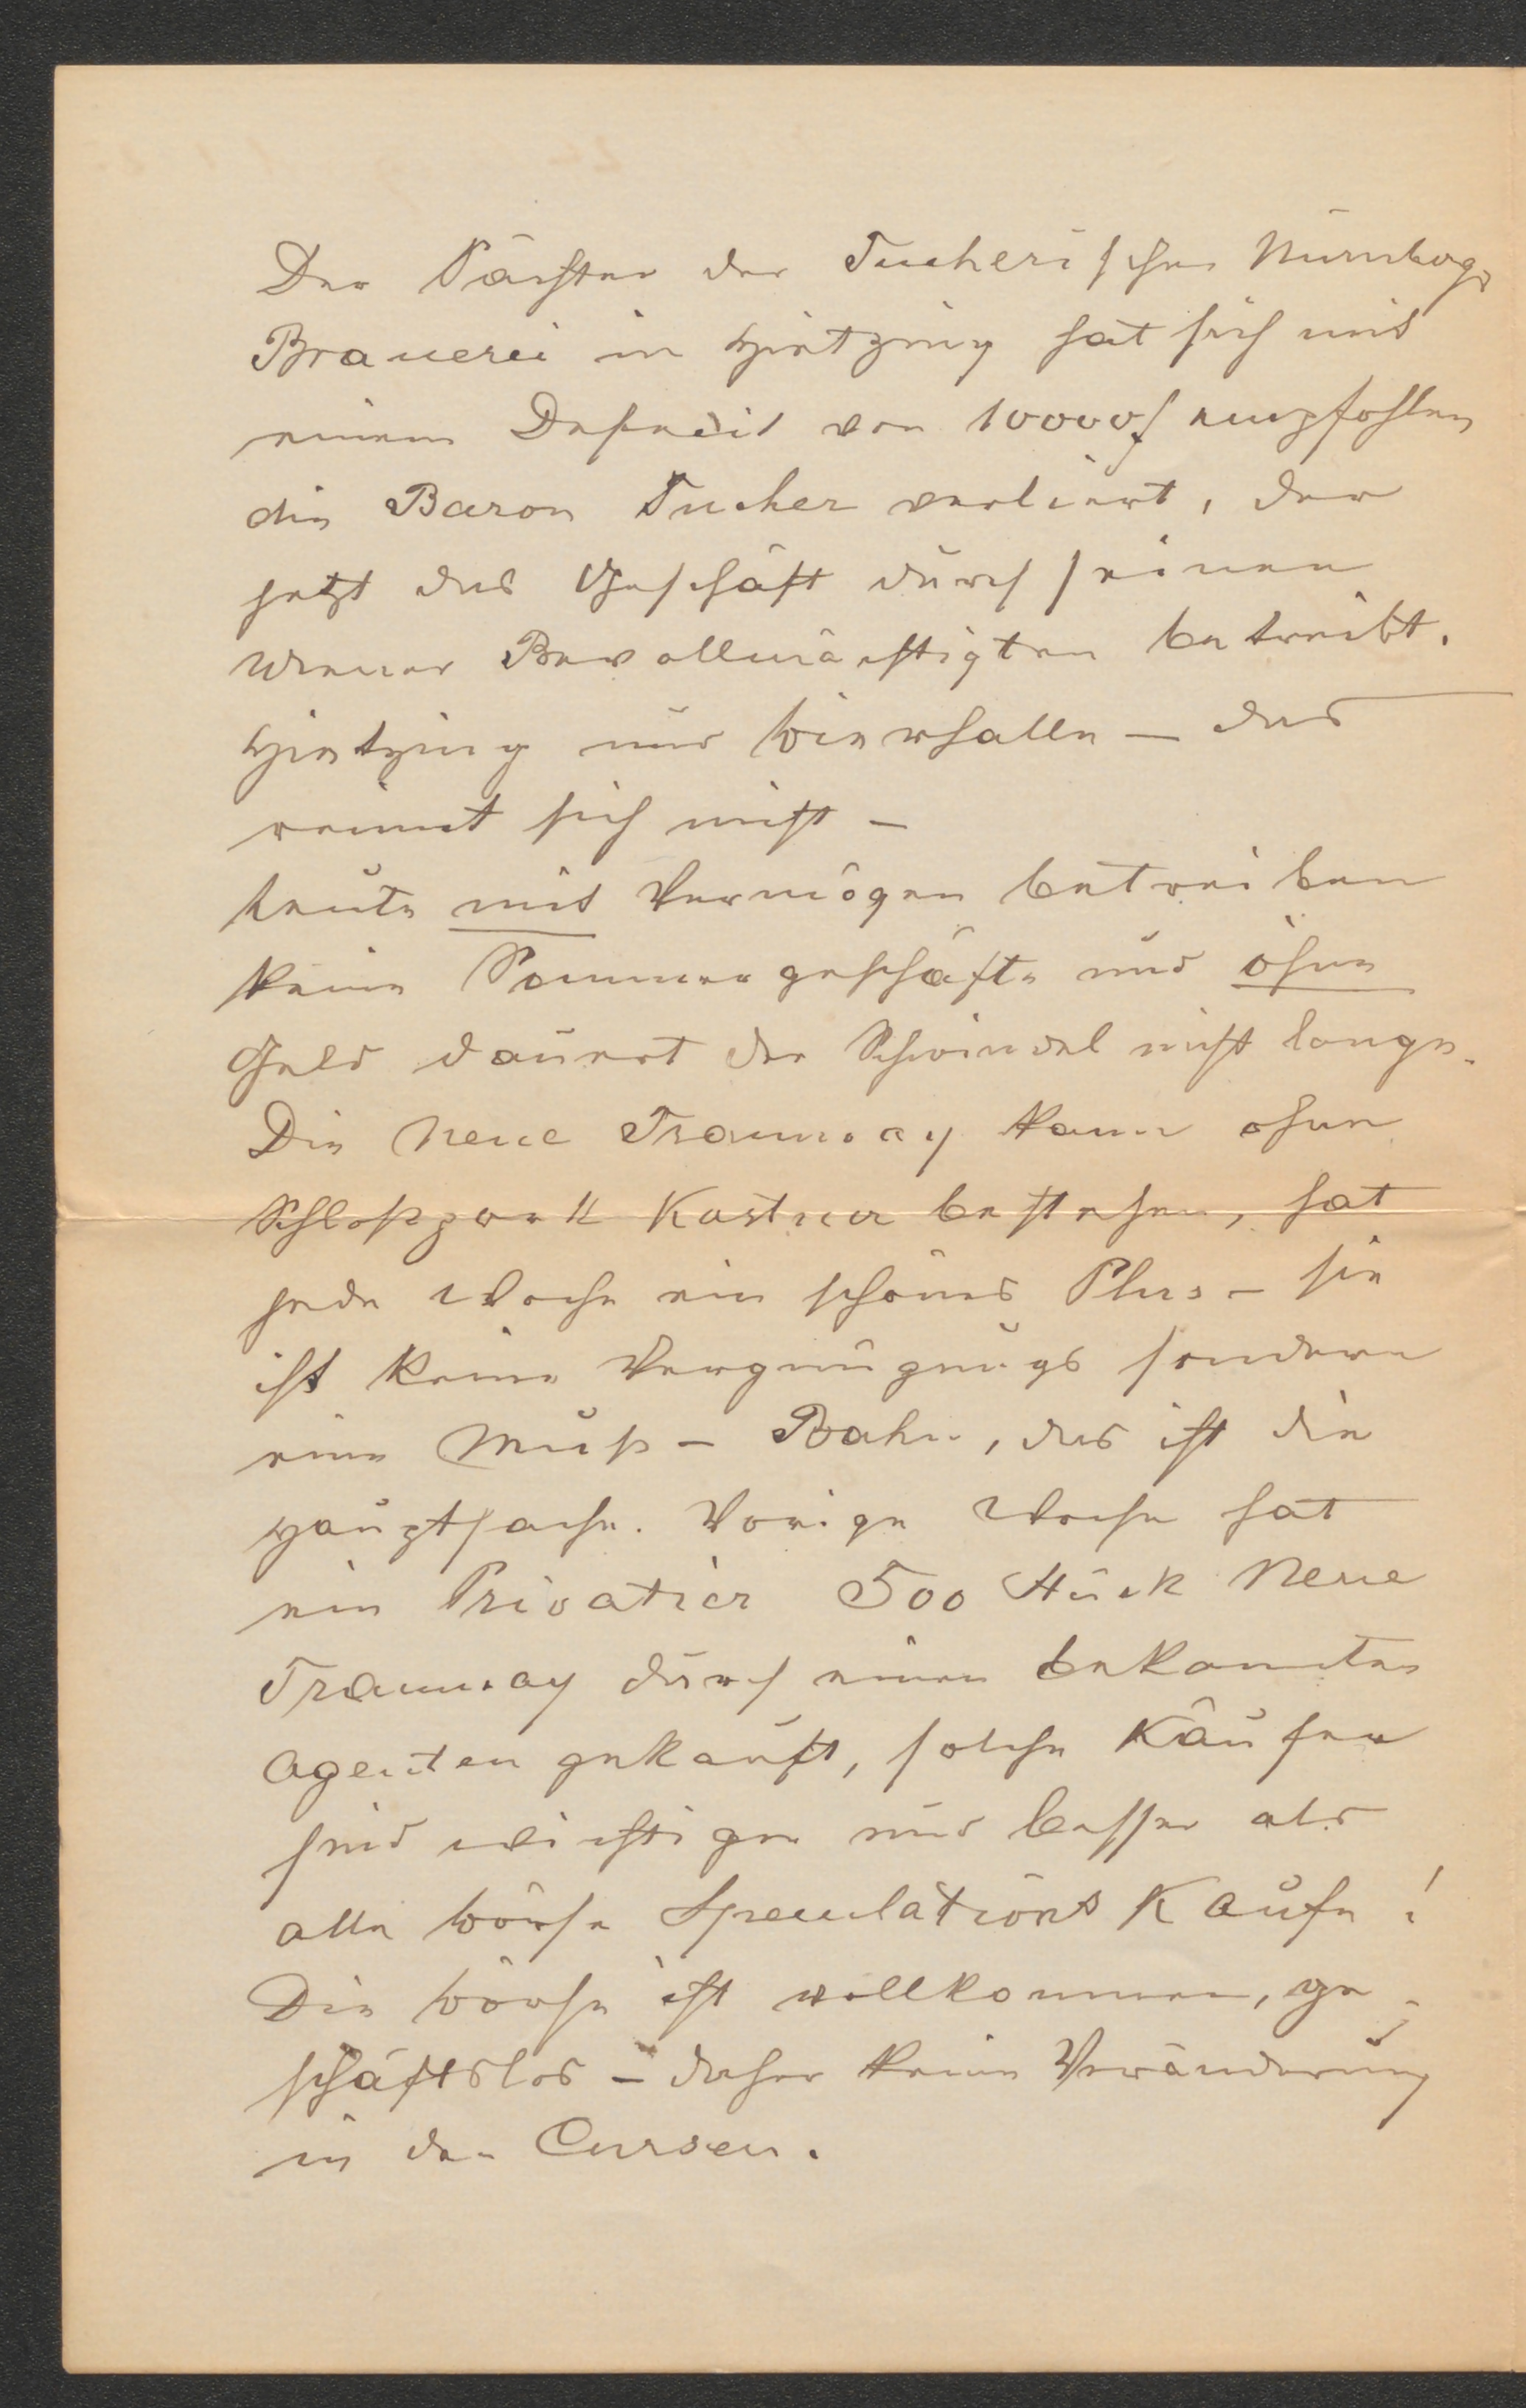 Der Pächter der Tucherischen Nürnberger
Brauerei in Hietzing hat sich mit
einem Defecit von 10000 f empfohlen
die Baron Tucher verliert, der
jetzt das Geschäft durch seinen
Wiener Bevollmächtigten betreibt.
Hietzing und Bierhalle — das
reimt sich nicht —
Leute mit Vermögen betreiben
keine Sommergeschäfte und ohne
Geld dauert der Schwindel nicht lange.
Die Neue Tramway kann ohne
Schloßpark Kastner bestehen, hat
jede Woche ein schönes Plus — sie
ist keine Vergnügungs sondern
eine Muß — Bahn, das ist die
Hauptsache. Vorige Woche hat
ein Privatier 500 Stück Neue
Tramway durch einen bekannten
Agenten gekauft, solche Käufer
sind wichtiger und besser als
alle Börse Speculations Käufe!
Die Börse ist vollkommen, ge-
schäftslos — daher keine Veränderung
in den Cursen.